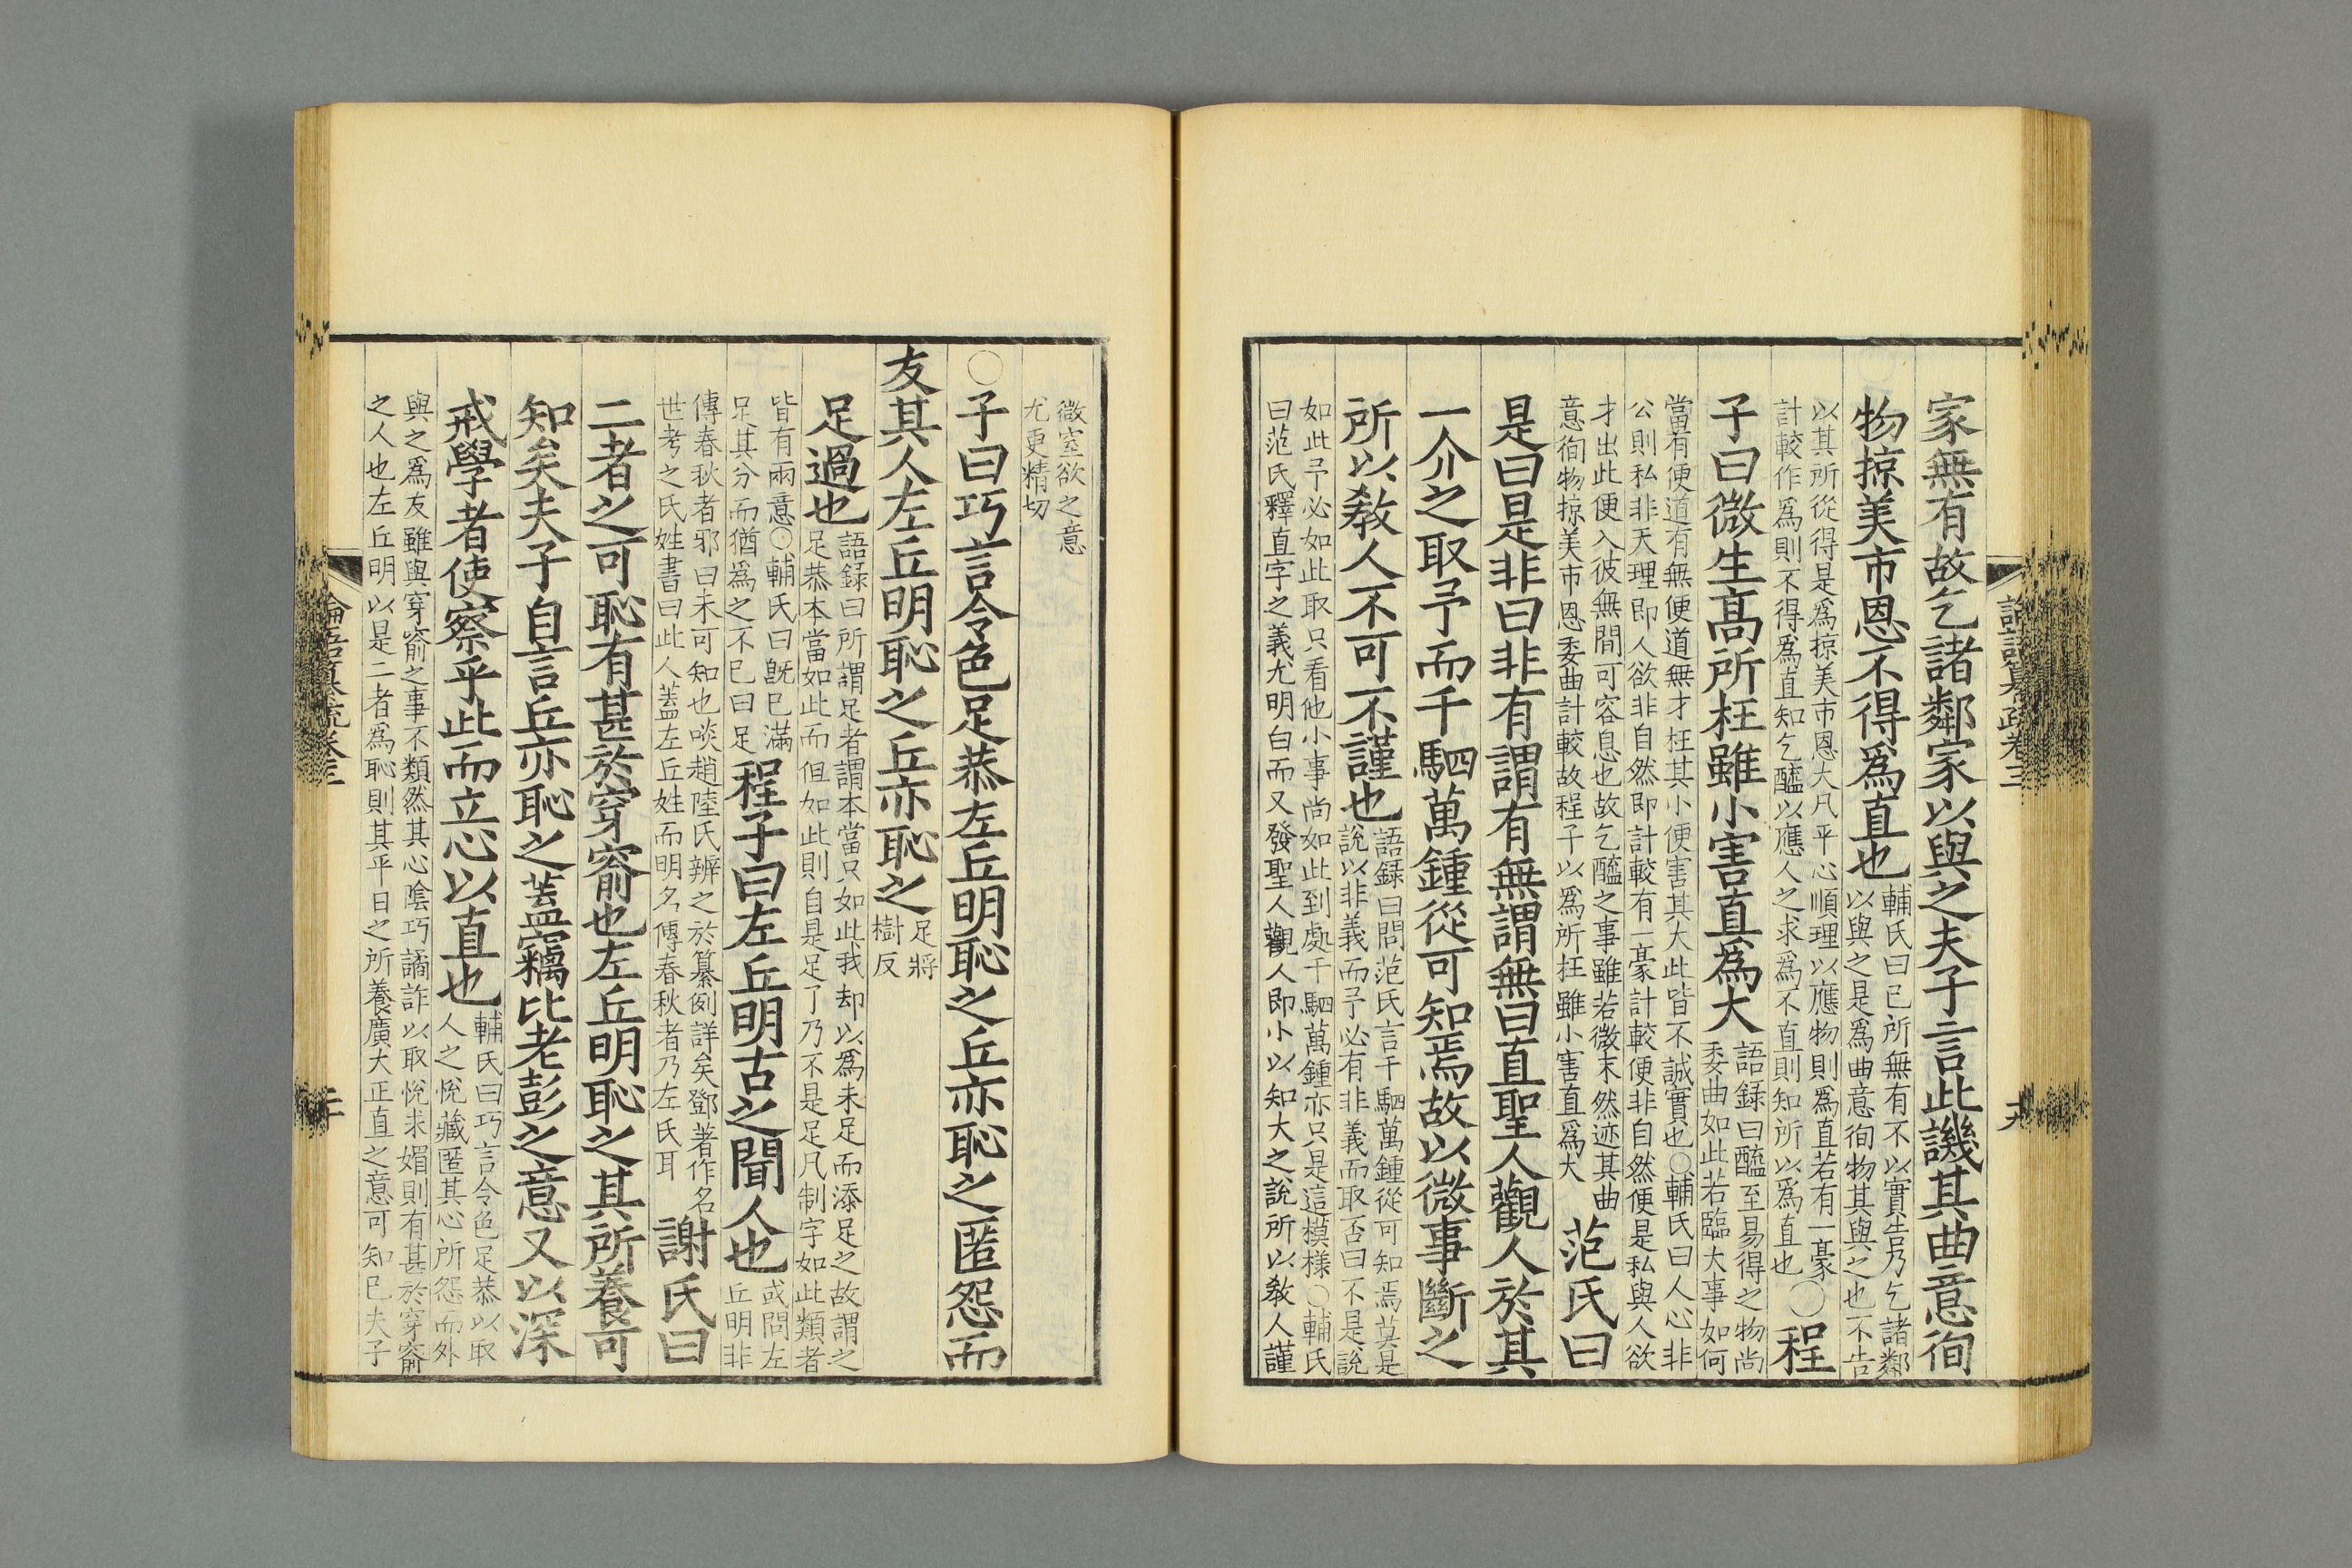 論語纂疏卷三
十九
家無有故乞諸鄰家以與之夫子言此譏其曲意徇
物掠美市恩不得爲直也
輔氏曰已所無有不以實告乃乞諸鄰
以與之是爲曲意徇物其與之也不告
以其所從得是爲掠美市恩大凡平心順理以應物則爲直若有一豪
計較作爲則不得爲直知乞醯以應人之求爲不直則知所以爲直也
○程
子曰微生高所枉雖小害直爲大
語録曰醯至易得之物尚
委曲如此若臨大事如何
當有便道有無便道無才枉其小便害其大此皆不誠實也○輔氏曰人心非
公則私非天理即人欲非自然即計較有一豪計較便非自然便是私與人欲
才出此便入彼無間可容息也故乞醯之事雖若微末然迹其曲
意徇物掠美市恩委曲計較故程子以爲所枉雖小害直爲大
范氏曰
是曰是非曰非有謂有無謂無曰直聖人觀人於其
一介之取予而千駟萬鍾從可知焉故以微事斷之
所以敎人不可不謹也
語録曰問范氏言千駟萬鍾從可知焉莫是
說以非義而予必有非義而取否曰不是說
如此予必如此取只看他小事尚如此到處千駟萬鍾亦只是這模様○輔氏
曰范氏釋直字之義尤明白而又發聖人觀人即小以知大之說所以敎人謹
微窒欲之意
尤更精切
○子曰巧言令色足恭左丘明恥之丘亦恥之匿怨而
友其人左丘明恥之丘亦恥之
足將
樹反
足過也
語録曰所謂足者謂本當只如此我却以爲未足而添足之故謂之
足恭本當如此而但如此則自是足了乃不是足凡制字如此類者
皆有兩意○輔氏曰旣已滿
足其分而猶爲之不已曰足
程子曰左丘明古之聞人也
或問左
丘明非
傳春秋者邪曰未可知也啖趙陸氏辨之於纂例詳矣鄧著作名
世考之氏姓書曰此人蓋左丘姓而明名傳春秋者乃左氏耳
謝氏曰
二者之可恥有甚於穿窬也左丘明恥之其所養可
知矣夫子自言丘亦恥之蓋竊比老彭之意又以深
戒學者使察乎此而立心以直也
輔氏曰巧言令色足恭以取
人之悅藏匿其心所怨而外
與之爲友雖與穿窬之事不類然其心陰巧譎詐以取悅求媚則有甚於穿窬
之人也左丘明以是二者爲恥則其平日之所養廣大正直之意可知已夫子
論語纂疏卷三
二十